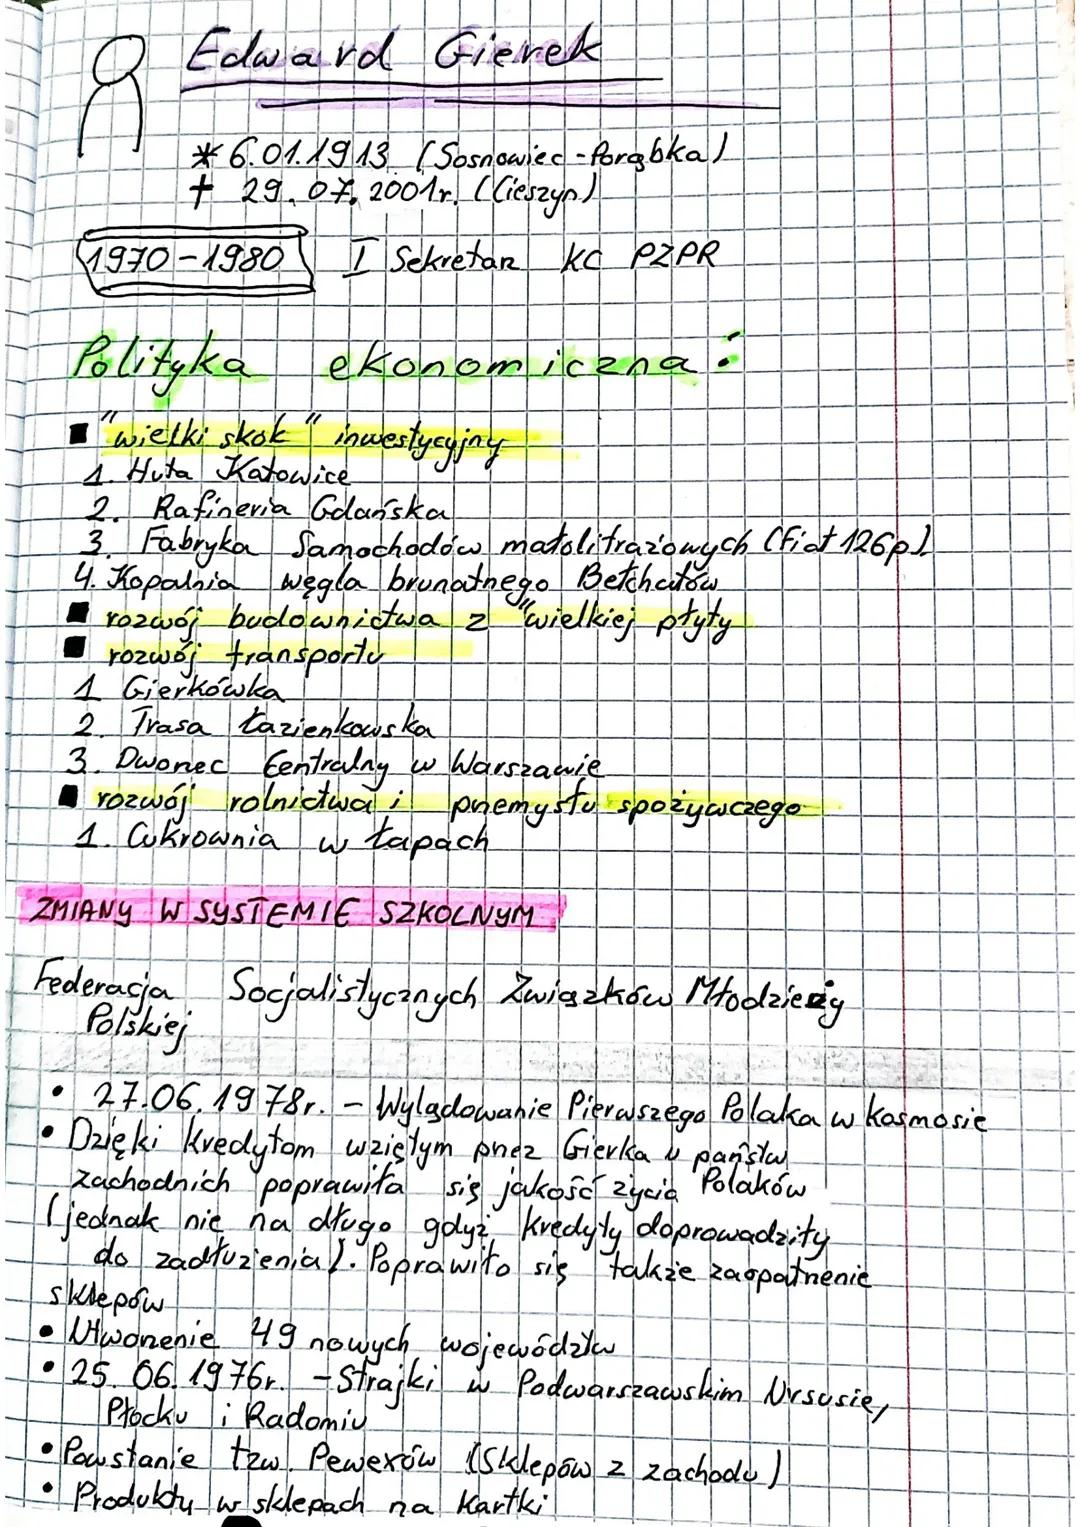 Edward Gierek
* 6.01.1913 (Sosnowiec - Porąbka)
† 29.07.2001r. (Cieszyn)
1970-1980 I Sekretarz KC PZPR
Polityka ekonomiczna:
■ "wielki skok" inwestycyjny
1. Huta Katowice
2. Rafineria Gdańska
3. Fabryka Samochodów małolitrażowych (Fiat 126p)
4. Kopalnia węgla brunatnego Bełchatów
■ rozwój budownictwa z "wielkiej płyty
■ rozwój transportu
1 Gierkówka
2. Trasa Łazienkowska
3. Dworzec Centralny w Warszawie
■ rozwój rolnictwa i przemysłu spożywczego
1. Cukrownia w Łapach
ZMIANY W SYSTEMIE SZKOLNYM
Federacja Socjalistycznych Związków Młodzieży
Polskiej
• 27.06.1978r. - Wylądowanie Pierwszego Polaka w kosmosie
• Dzięki kredytom wziętym przez Gierka u państw
zachodnich poprawiła się jakość życia Polaków
(jednak nie na długo gdyż kredyty doprowadziły
do zadłużenia). Poprawiło się także zaopatrzenie
sklepów
• Utworzenie 49 nowych województw
• 25.06.1976r. - Strajki w Podwarszawskim Ursusie,
Płocku i Radomiu
• Powstanie tzw. Pewexów (Sklepów z zachodu)
• Produkty w sklepach na kartki